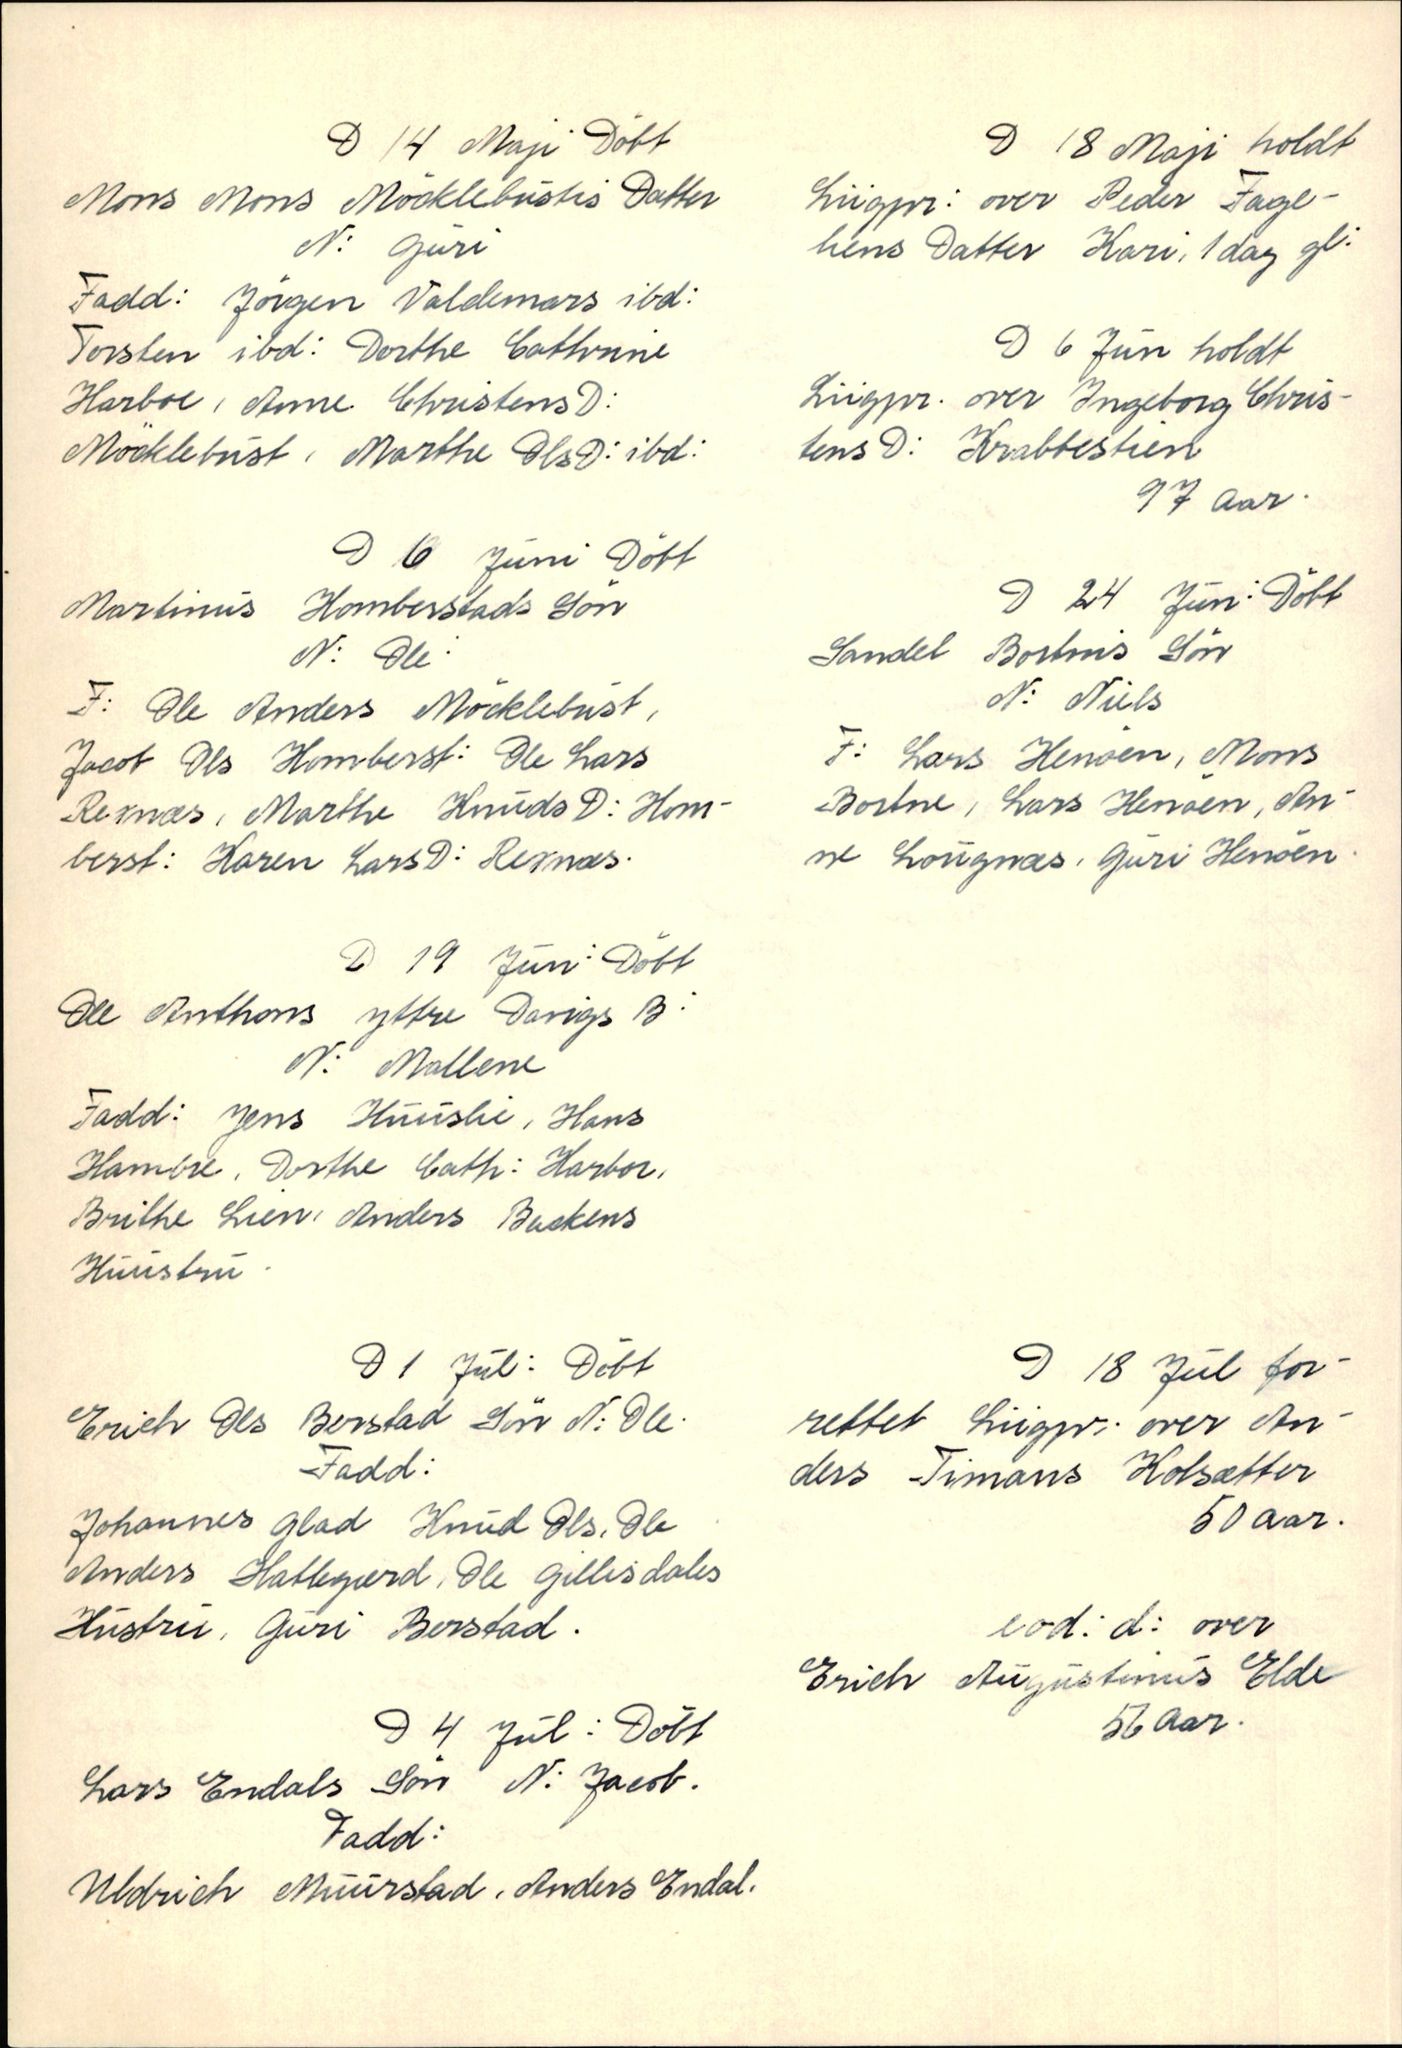 D 14 Maji Döbt
Mons Mons Möcklebustis Datter
N: Guri
Fadd: Jörgen Valdemars ibd:
Torsten ibd: Dorthe Cathrine
Harboe, Anne ChristensD:
Möcklebust, Marthe OlsD: ibd:
D 6 Juni Döbt
Martinus Homberstads Sön
N: Ole
F: Ole Anders Möcklebust,
Jacob Ols Homberst: Ole Lars
Rexnæs, Marthe KnudsD: Hom-
berst: Karen LarsD: Rexnæs.
D 19 Jun: Döbt
Ole Anthons yttre Davigs B:
N: Mallene
Fadd: Jens Huuslie, Hans
Hambre, Dorthe Cath: Harboe,
Brithe Lien, Anders Backens
Huustru.
D 1 Jul: Döbt
Erich Ols Berstad Sön N: Ole.
Fadd:
Johannes Glad Knud Ols, Ole
Anders Hatlegierd, Ole Gillisdales
Hustru, Guri Berstad.
D 4 Jul: Döbt
Lars Endals Sön N: Jacob.
Fadd:
Uldrich Muurstad, Anders Endal.
D 18 Maji holdt
Liigpr: over Peder Fage-
liens Datter Kari, 1 dag gl:
D 6 Jun holdt
Liigpr. over Ingeborg Chris-
tensD: Krabbestien
97 aar.
D 24 Jun: Döbt
Sandel Bortnis Sön
N: Niels
F: Lars Henöen, Mons
Bortne, Lars Henöen, An-
ne Lougnæs, Guri Henöen.
D 18 Jul for-
rettet Liigpr: over An-
ders Timans Kolsætter
50 aar.
eod: d: over
Erich Augustinus Elde
56 aar.